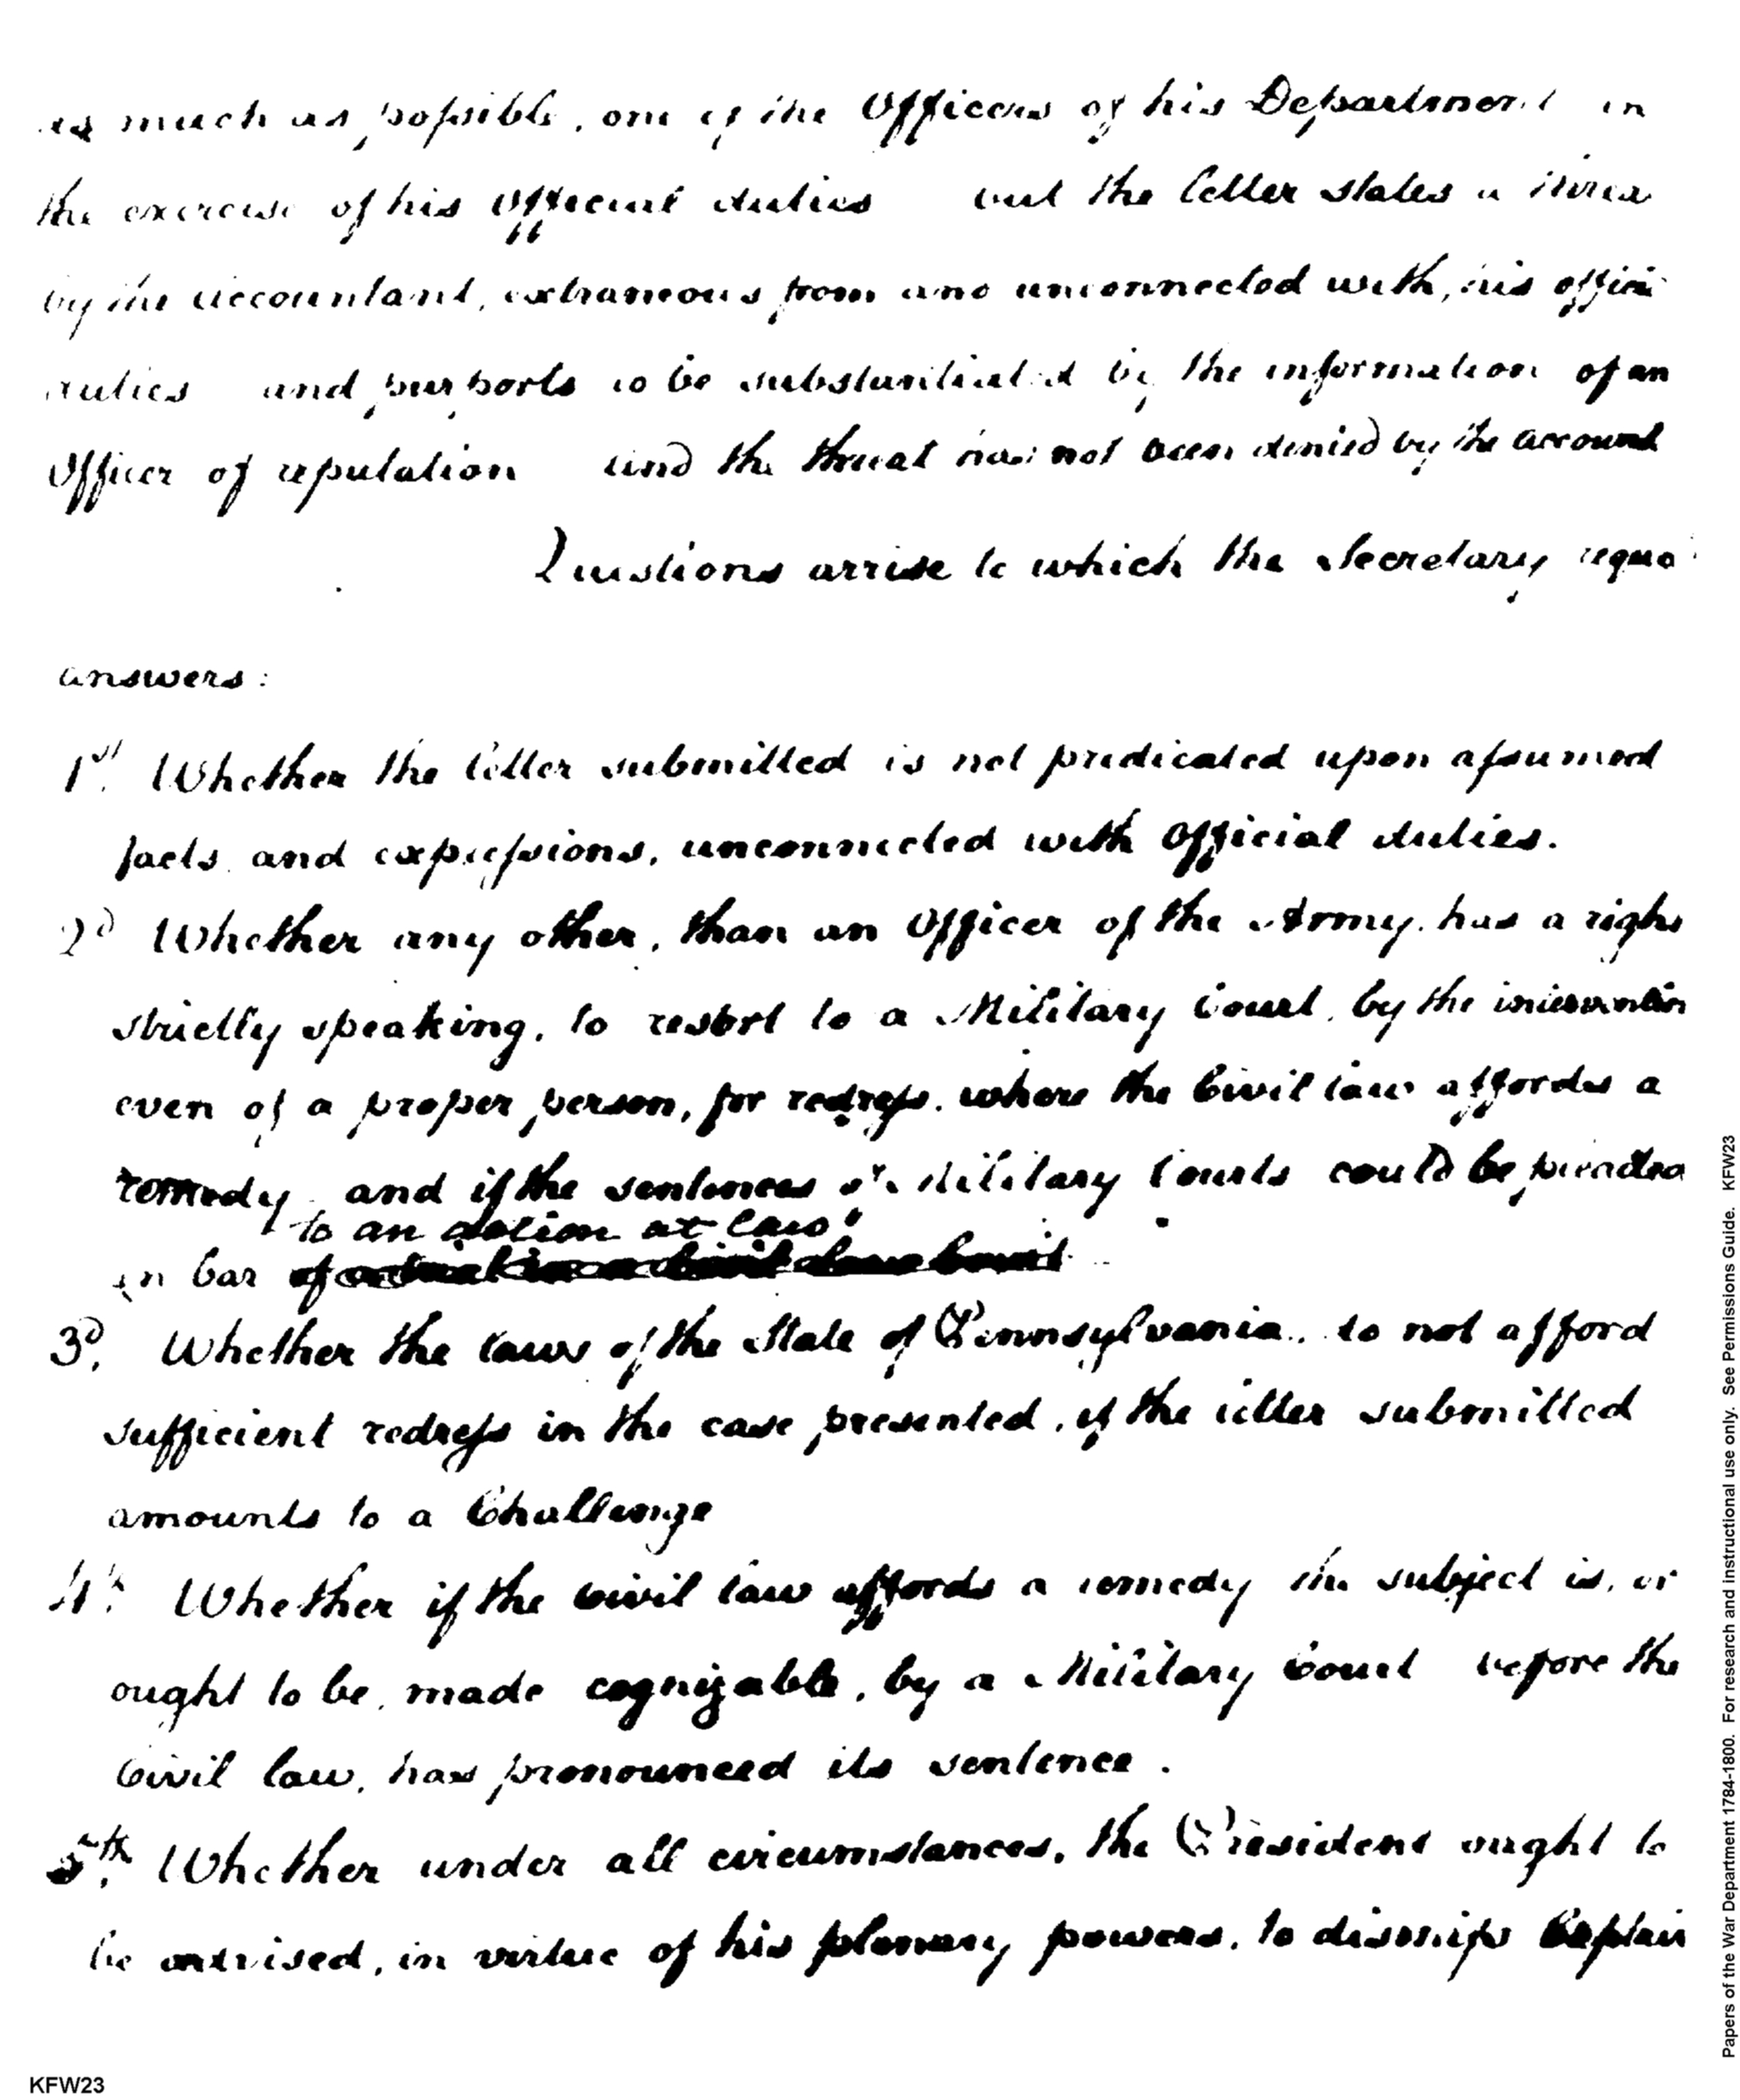 as much as possible, one of the Officers of his Department in
the exercise of his official duties but the letter states a threa
by the accountant, extraneous from and unconnected with, his offici
duties and purports to be substantiated by the information of an
Officer of reputation and the threat has not been denied by the account
Questions arrise to which the Secretary reque
answers:
1st. Whether the letter submitted is not predicated upon assumed
facts and expressions, unconnected with official duties.
2d Whether any other, than an Officer of the Army, has a right
strictly speaking, to resort to a Military Court, by the intervention
even of a proper person, for redress, where the Civil law affords a
remedy, and if the sentences of Military Courts could be pleaded
to an action at law
in bar of
3d. Whether the laws of the State of Pennsylvania, do not afford
sufficient redress in the case presented, if the letter submitted
amounts to a Challenge
4th. Whether if the civil law affords a remedy the subject is, or
ought to be, made cognizable, by a Military Court before the
Civil law, has pronounced its sentence.
5th. Whether under all circumstances, the President ought to
be advised, in virtue of his plenary powers, to dismiss Captain
KFW23
Papers of the War Department 1784-1800. For research and instructional use only. See Permissions Guide. KFW23